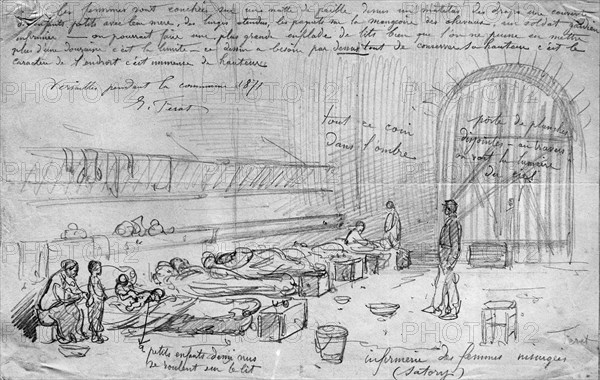 les femmes sont couchées sur une botte de paille dans un matelas des draps une couverture
des enfants petits avec leur mère, des linges étendus les paquets sur la mangeoire des chevaux un soldat
infirmier — on pourrait faire une plus grande enfilade de lits bien que l'on ne puisse en mettre
plus d'une douzaine c'est la limite — ce dessin a besoin par dessus tout de conserver sa hauteur c'est le
caractère de l'endroit c'est
de hauteur
Versailles pendant la commune 1871
tout ce coin
dans l'ombre
porte de planches
disjointes — au travers
on voit la lumière
du ciel
petits enfants demi nus
se roulent sur le lit
infirmerie des femmes
(Satory)